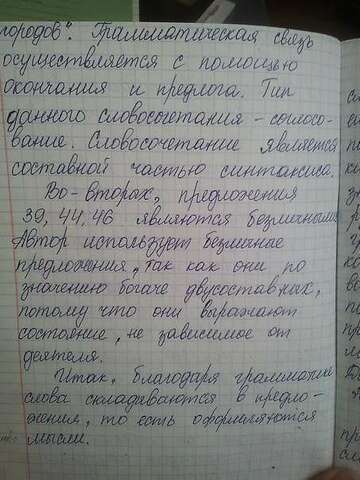 породов". Грамматическая связь
осуществляется с помощью
окончания и предлога. Тип
данного словосочетания - согласо-
вание. Словосочетание является
составной частью синтаксиса.
Во-вторых, предложения
39, 44, 46 являются безличными.
Автор использует безличные
предложения, так как они по
значению богаче двусоставных,
потому что они выражают
состояние, не зависимое от
деятеля.
Итак, благодаря грамматике
слова складываются в предло-
жения, то есть оформляются
мысли.